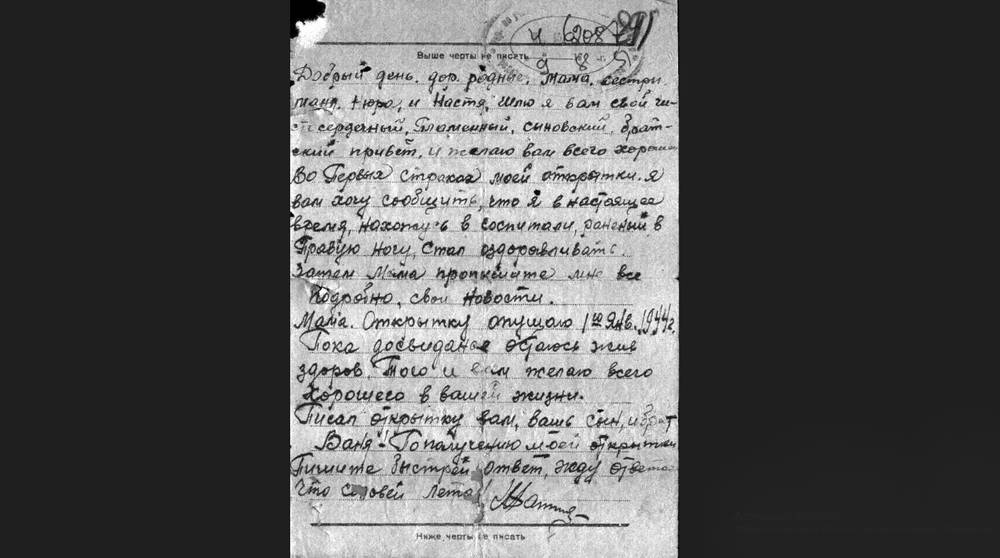 Выше черты не писать
Добрый день. дор. родные, мама. сестри
маня. Нюра, и Настя, шлю я вам свой чи-
сердечный, Пламенный, сыновский, брат-
ский привет, и желаю вам всего хорошего
Во Первых строках моей открытки. я
вам хочу сообщить, что я в настоящее
время, нахожусь в госпитали, раненый в
Правую ногу, Стал оздоравливать.
Затем Мама пропишите мне все
Подробно, свои Новости.
Мама. Открытку опущаю 1го Янв. 1944г.
Пока досвиданье остаюсь жив
здоров. Того и вам желаю всего
Хорошего в вашей жизни.
Писал открытку вам, вашь сын, и брат
Ваня! По получению моей открытки
Пишите быстрей ответ, жду ответа
Что соловей лета
Ниже черты не писать